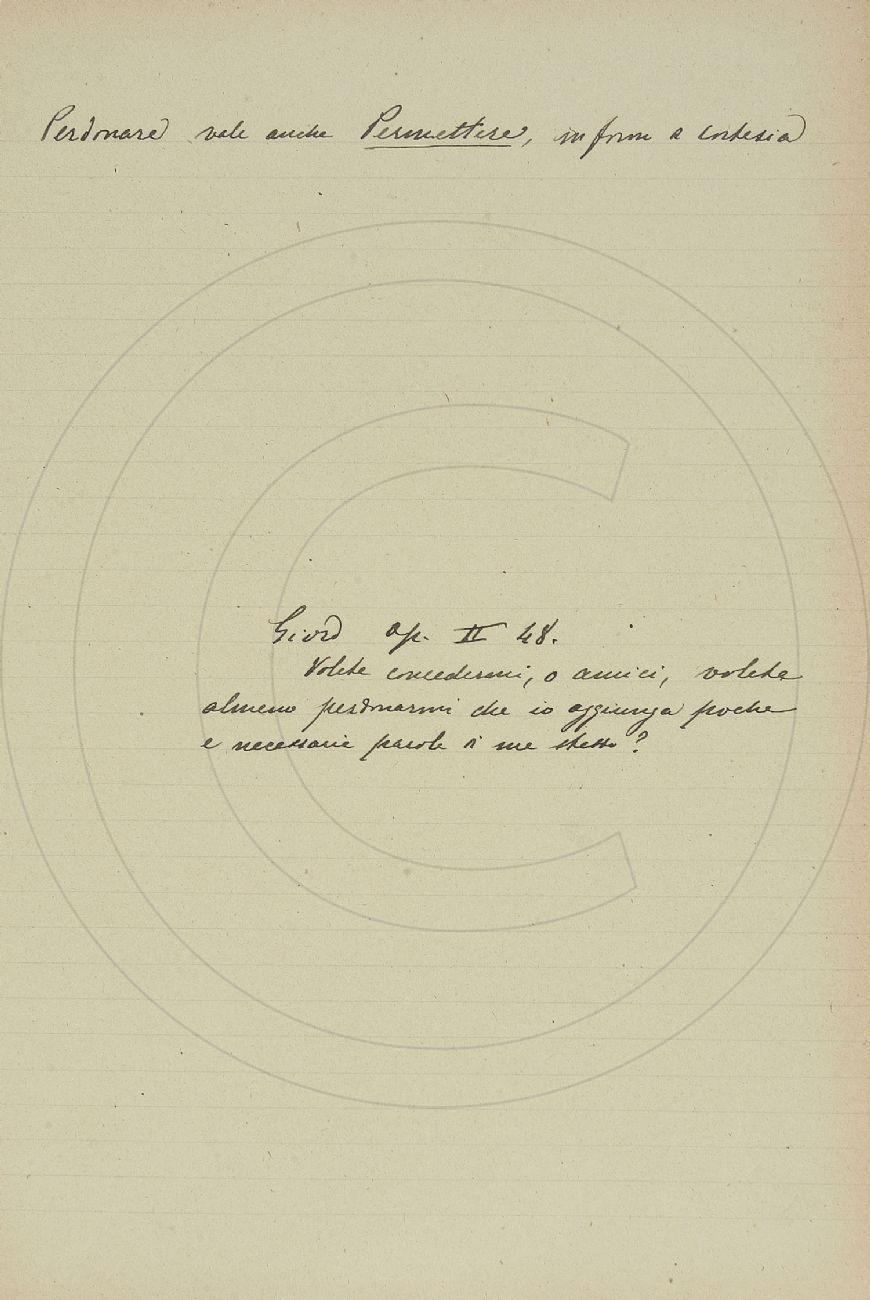 Perdonare vale anche Permettere, in form di cortesia
Giord Op. II 48.
Volete concedermi, o amici, volete
almeno perdonarmi che io aggiunga poche
e necessarie parole di me stesso?